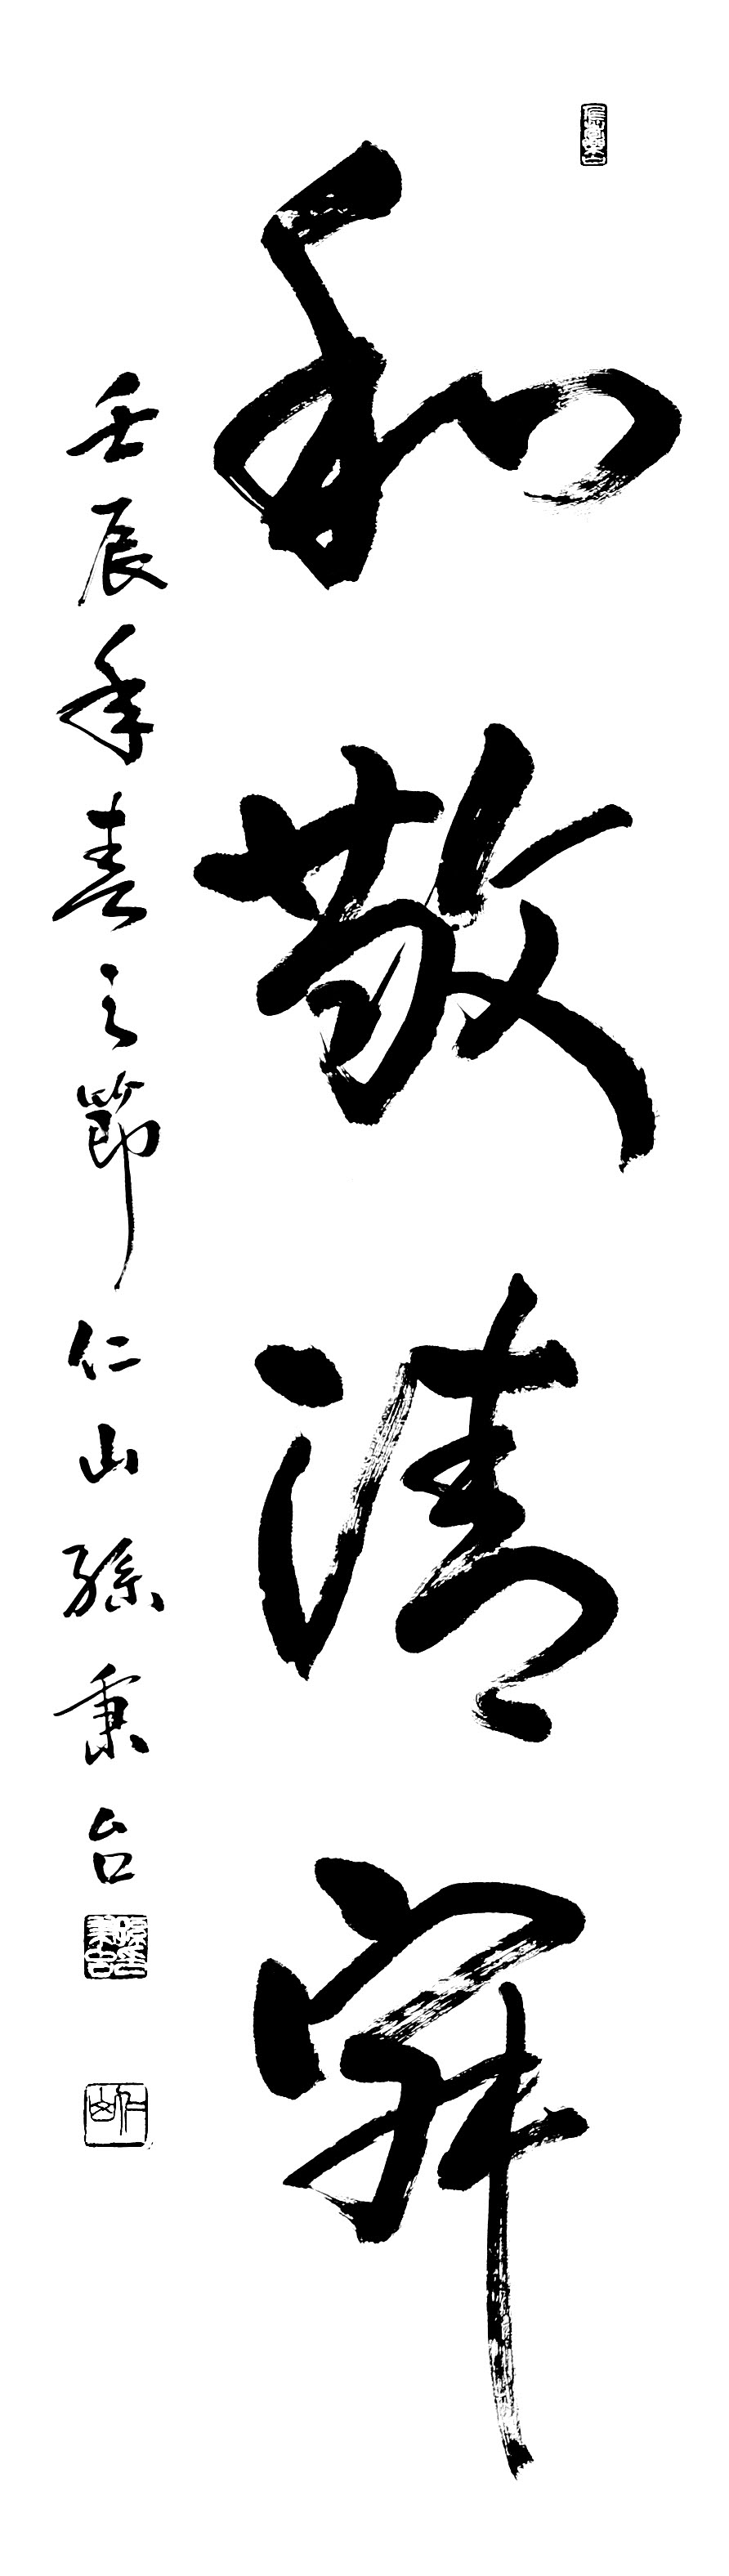 和敬清寂
壬辰年春之節仁山孫秉台